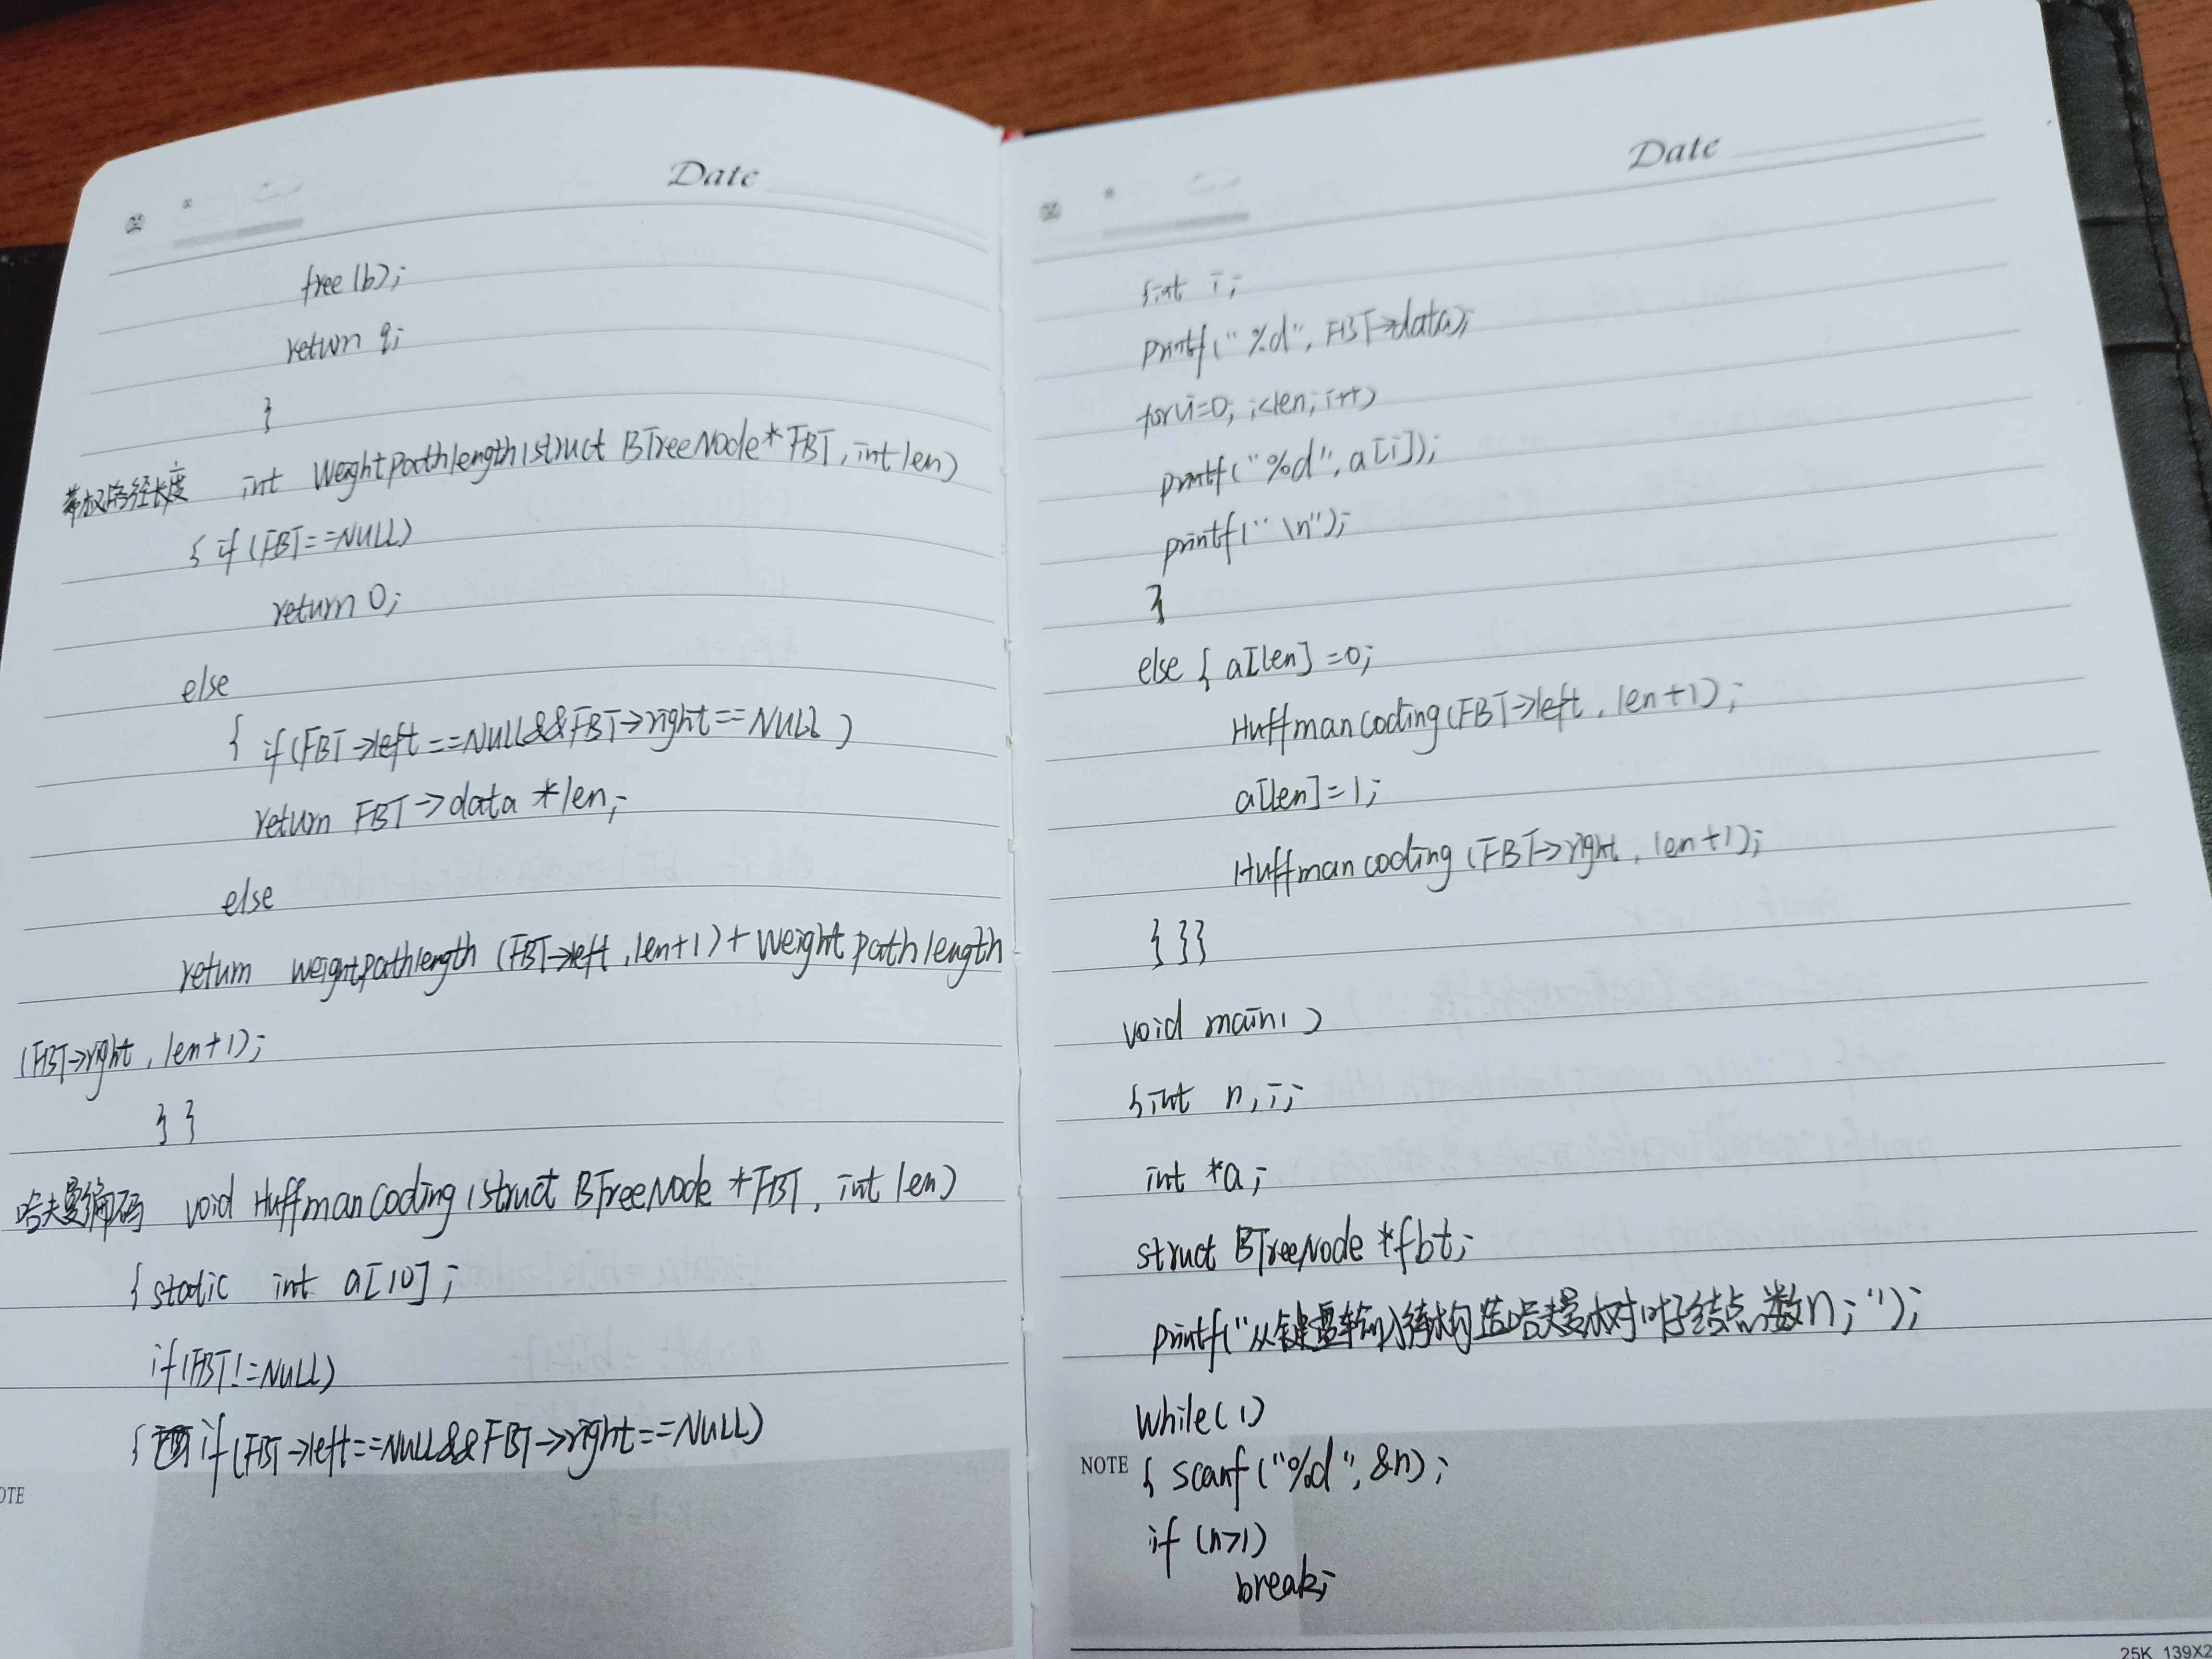 Date
free(b);
return q;
}
带权路径长度 int Weightpathlength(struct BTreeNode* FBT, int len)
{ if (FBT==NULL)
return 0;
else
{ if(FBT->left==NULL&&FBT->right==NULL)
return FBT->data *len;
else
return weightpathlength (FBT->left, len+1)+ weightpathlength
(FBT->right, len+1);
} }
哈夫曼编码 void HuffmanCoding (struct BTreeNode *FBT, int len)
{ static int a[10];
if(FBT!=NULL)
{ if(FBT->left==NULL&&FBT->right==NULL)
OTE
Date
{int i;
printf("%d", FBT->data);
for(i=0; i<len; i++)
printf("%d", a[i]);
printf("\n");
}
else { a[len]=0;
Huffmancoding(FBT->left, len+1);
a[len]=1;
Huffmancoding (FBT->right, len+1);
} } }
void main( )
{int n,i;
int *a;
struct BTreeNode *fbt;
printf("从键盘输入待构造哈夫曼树叶子结点数n;");
while(1)
NOTE { scanf("%d", &n);
if (n>1)
break;
25K 139X2